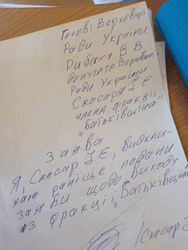 Голові Верховної
Ради України
Рибаку В.В.
депутата Верховної
Ради України
Скосаря І.Є.
члена фракції
"Батьківщина"
Заява
Я, Скосар І.Є, відкли-
каю раніше подани
заяви щодо виходу
із фракції "Батьківщина"
(Скосар